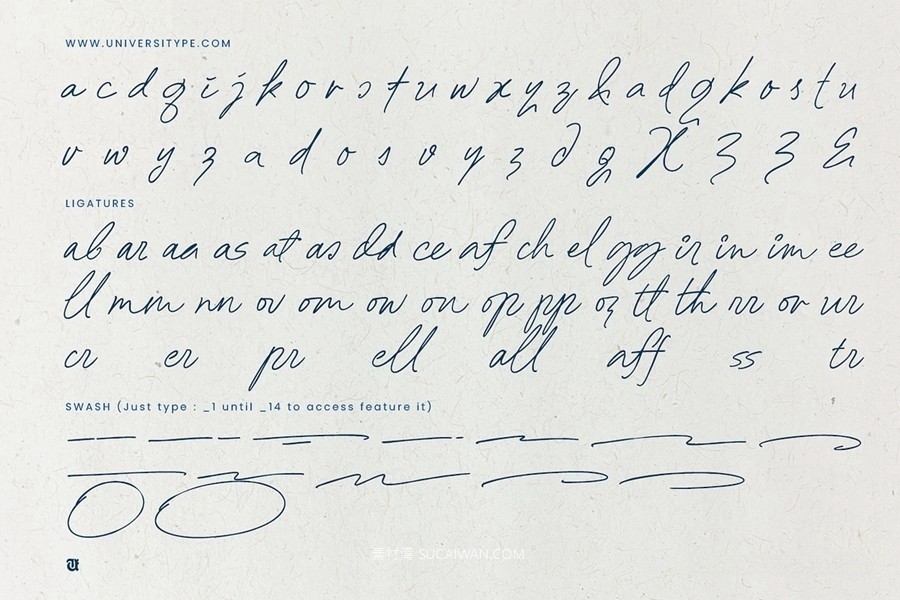 WWW.UNIVERSITYPE.COM
a c d g i j k o r s t u w x y z h a d g k o s t u
v w y z a d o s v y z d g X Z Z E
LIGATURES
ab ar aa as at as dd ce af ch el gg ir in im ee
ll mm nn ov om ow on op pp oz tt th rr or ur
cr er pr ell all aff ss tr
SWASH (Just type : _1 until _14 to access feature it)
素材湾 SUCAIWAN.COM